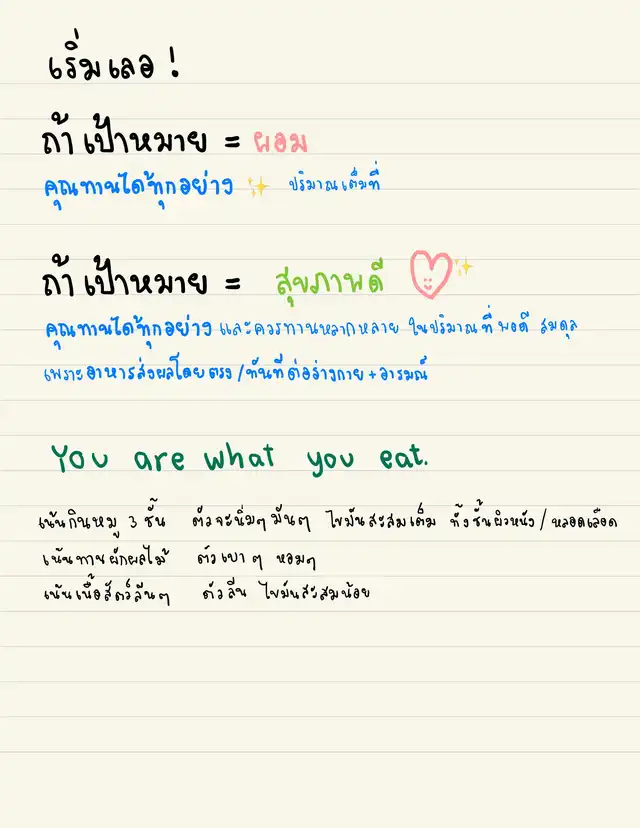 เริ่มเลอ !
ถ้า เป้าหมาย = ผอม
คุณทานได้ทุกอย่าง ปริมาณเต็มที่
ถ้า เป้าหมาย = สุขภาพดี
คุณทานได้ทุกอย่าง และควรทานหลากหลาย ในปริมาณที่ พอดี สมดุล
เพราะอาหารส่งผลโดยตรง/ทันทีต่อร่างกาย + อารมณ์
You are what you eat.
เน้นกินหมู 3 ชั้น ตัวจะนิ่มๆ มันๆ ไขมันสะสมเต็ม ทั้งชั้นผิวหนัง / หลอดเลือด
เน้นทานผักผลไม้ ตัวเบาๆ หอมๆ
เน้นเนื้อสัตว์ลีนๆ ตัวลีน ไขมันสะสมน้อย